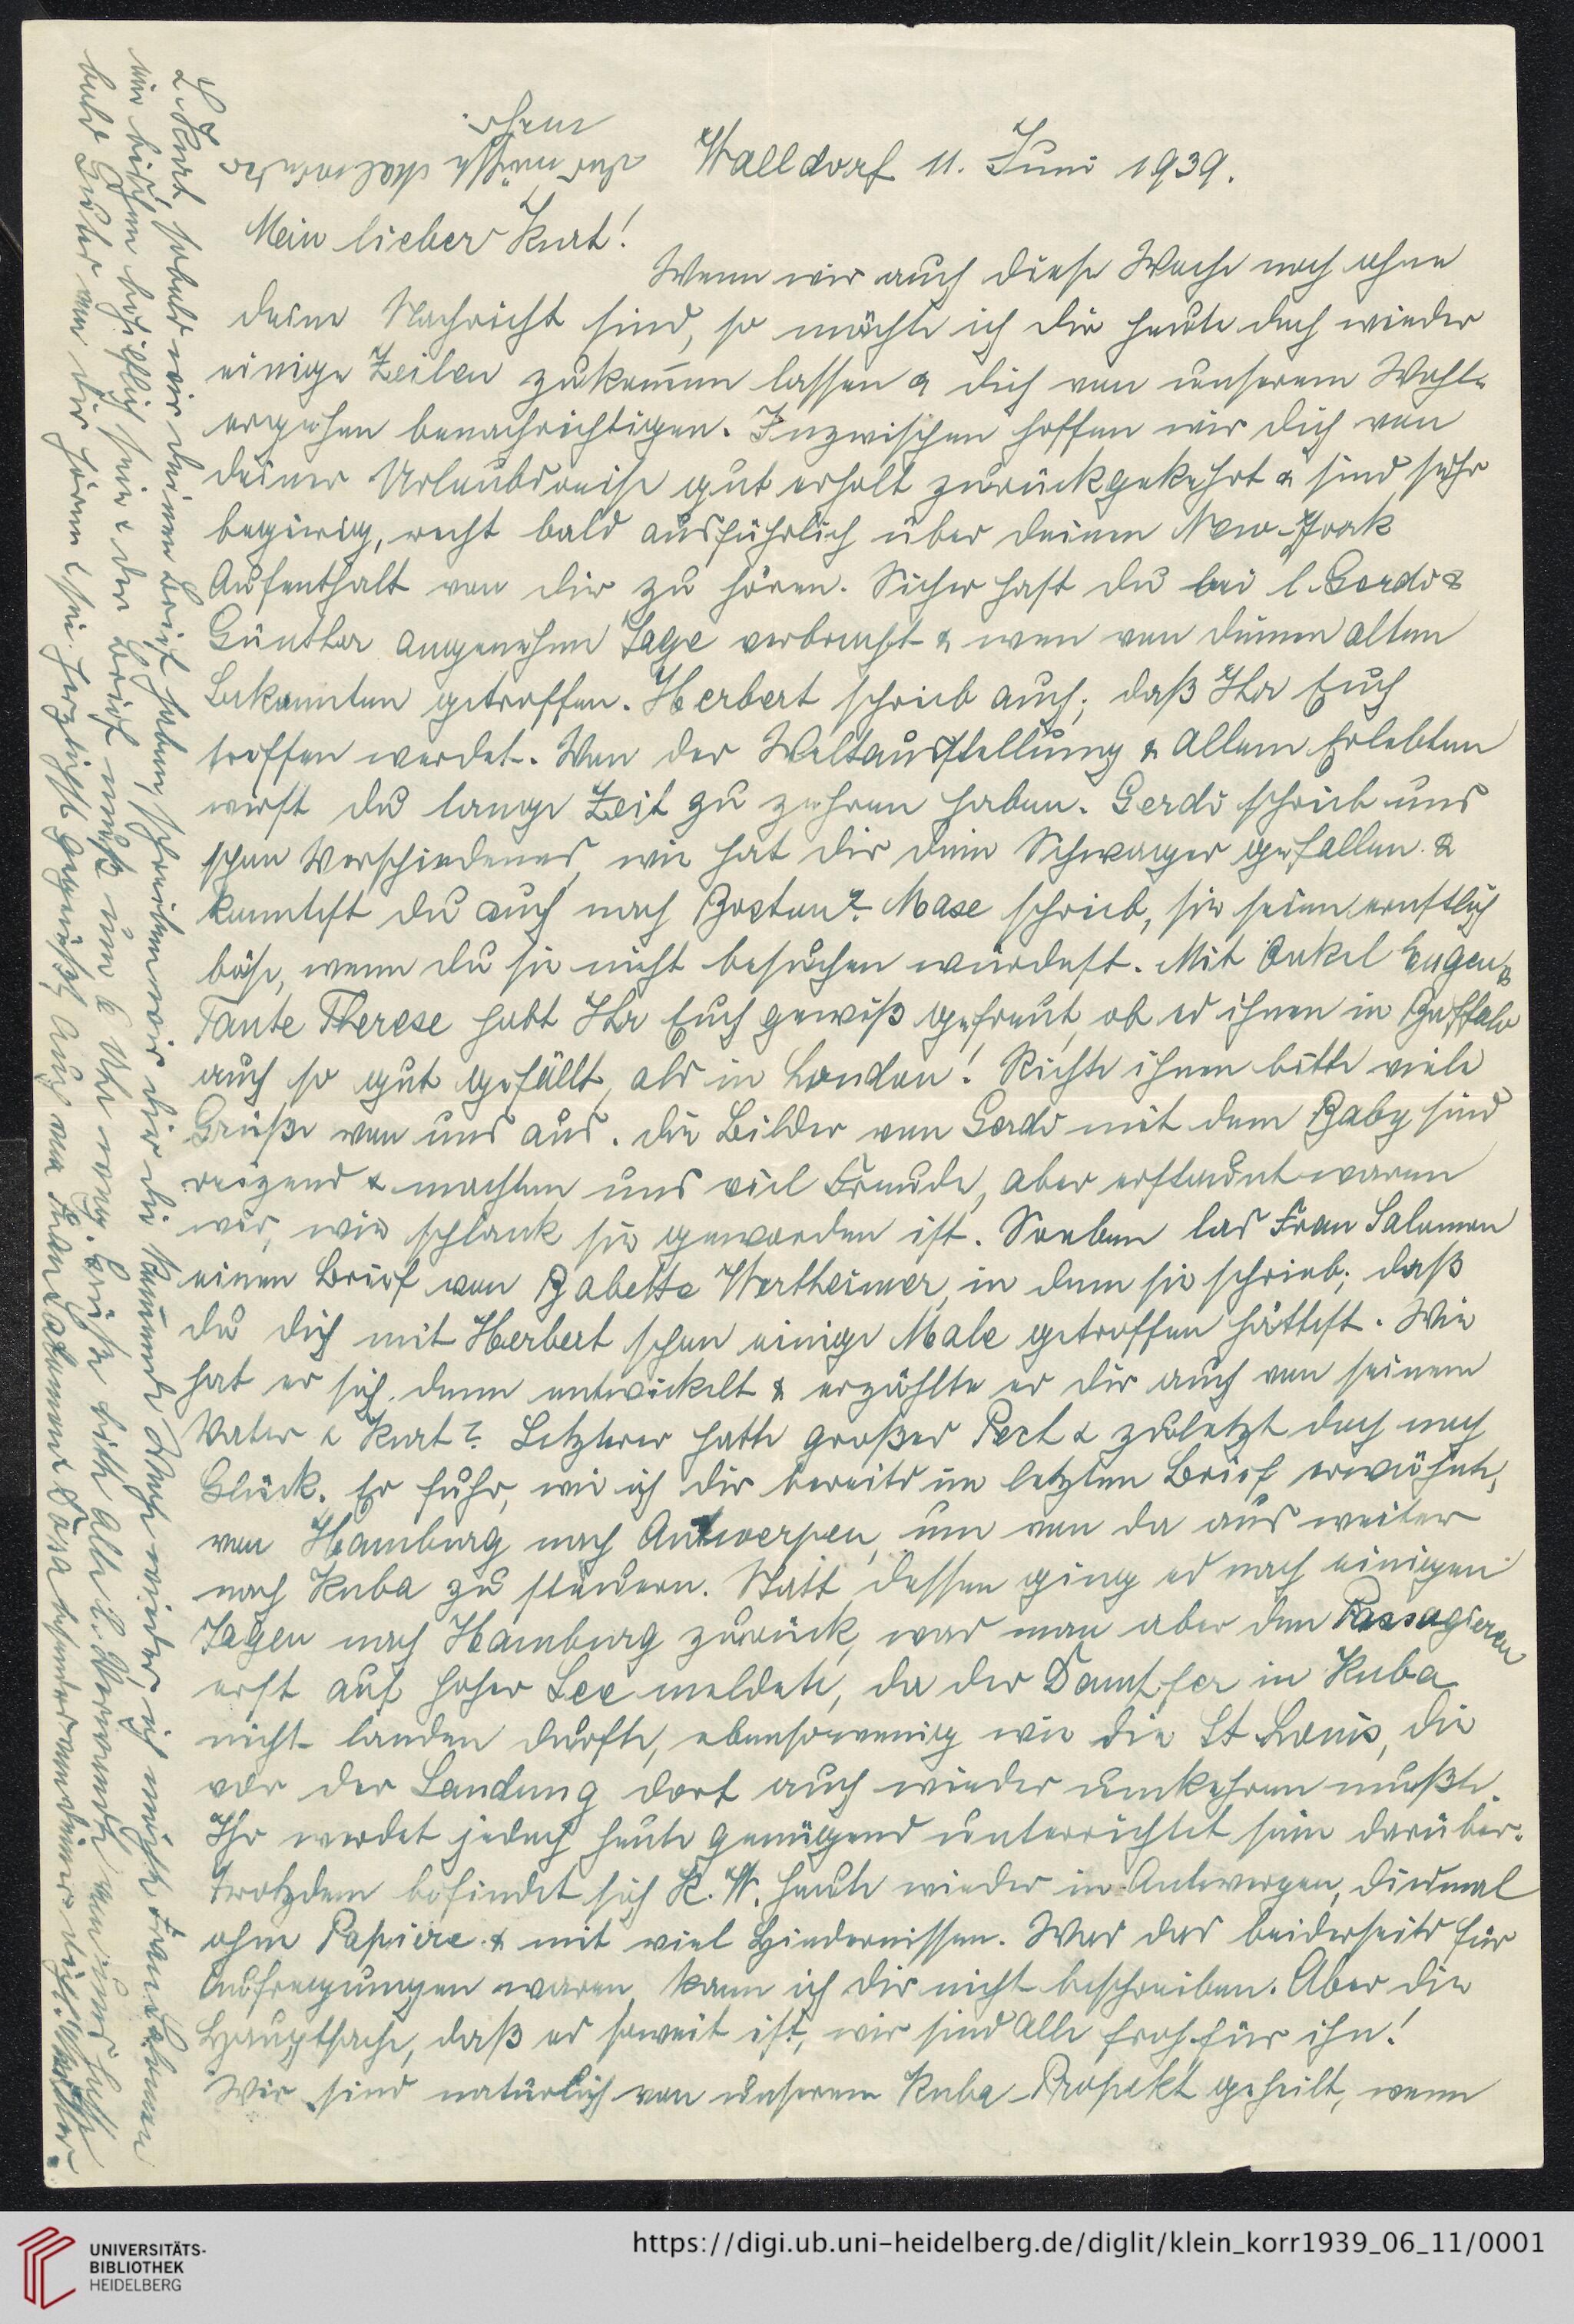 Walldorf 11. Juni 1939.
Mein lieber Kurt!
Wenn wir auch diese Woche noch ohne
deine Nachricht sind, so möchte ich dir heute doch wieder
einige Zeilen zukommen lassen & dich von unserem Wohl-
ergehen benachrichtigen. Inzwischen hoffen wir dich von
deiner Urlaubsreise gut erholt zurückgekehrt & sind sehr
begierig, recht bald ausführlich über deinen New-York
Aufenthalt von dir zu hören. Sicher hast du bei l. Gerdi &
Günther angenehme Tage verbracht & wen von deinen alten
Bekannten getroffen. Herbert schrieb auch, daß Ihr Euch
treffen werdet. Von der Weltausstellung & allem Erlebten
wirst du lange Zeit zu zehren haben. Gerdi schrieb uns
schon Verschiedenes, wie hat dir dein Schwager gefallen &
konntest du auch nach Boston? Mase schrieb, sie seien ernstlich
böse, wenn du sie nicht besuchen würdest. Mit Onkel Eugen &
Tante Therese habt Ihr Euch gewiß gefreut, ob es ihnen in Buffalo
auch so gut gefällt, als in London! Richte ihnen bitte viele
Grüße von uns aus. Die Bilder von Gerdi mit dem Baby sind
reizend & machten uns viel Freude, aber erstaunt waren
wir, wie schlank sie geworden ist. Soeben las Frau Salomon
einen Brief von Babette Wertheimer, in dem sie schrieb, daß
du dich mit Herbert schon einige Male getroffen hättest. Wie
hat er sich denn entwickelt & erzählte er dir auch von seinem
Vater & Kurt? Letzterer hatte großes Pech & zuletzt doch noch
Glück. Er fuhr, wie ich dir bereits im letzten Brief erwähnte,
von Hamburg nach Antwerpen, um von da aus weiter
nach Kuba zu steuern. Statt dessen ging es nach einigen
Tagen nach Hamburg zurück, was man aber den Passagieren
erst auf hoher See meldete, da der Dampfer in Kuba
nicht landen durfte, ebensowenig wie die St. Louis, die
vor der Landung dort auch wieder umkehren mußte.
Ihr werdet jedoch heute genügend unterrichtet sein darüber.
Trotzdem befindet sich K. W. heute wieder in Antwerpen, diesmal
ohne Papiere & mit viel Hindernissen. Was das beiderseits für
Aufregungen waren, kann ich dir nicht beschreiben. Aber die
Hauptsache, daß es soweit ist, wir sind alle froh für ihn!
Wir sind natürlich von unserem Kuba-Projekt geheilt, wenn
L. Kurt, sobald wir deinen Brief haben, schreiben wir dir die kommende Woche wieder, ich möchte Frau Salomon
ein bißchen behilflich sein & der Brief muß um 6 Uhr weg. Grüße bitte alle l. Verwandte von uns & laß
bald Gutes von dir hören & sei herzlichst gegrüßt, auch von Frau Salomon &
UNIVERSITÄTS-
BIBLIOTHEK
HEIDELBERG
https://digi.ub.uni-heidelberg.de/diglit/klein_korr1939_06_11/0001